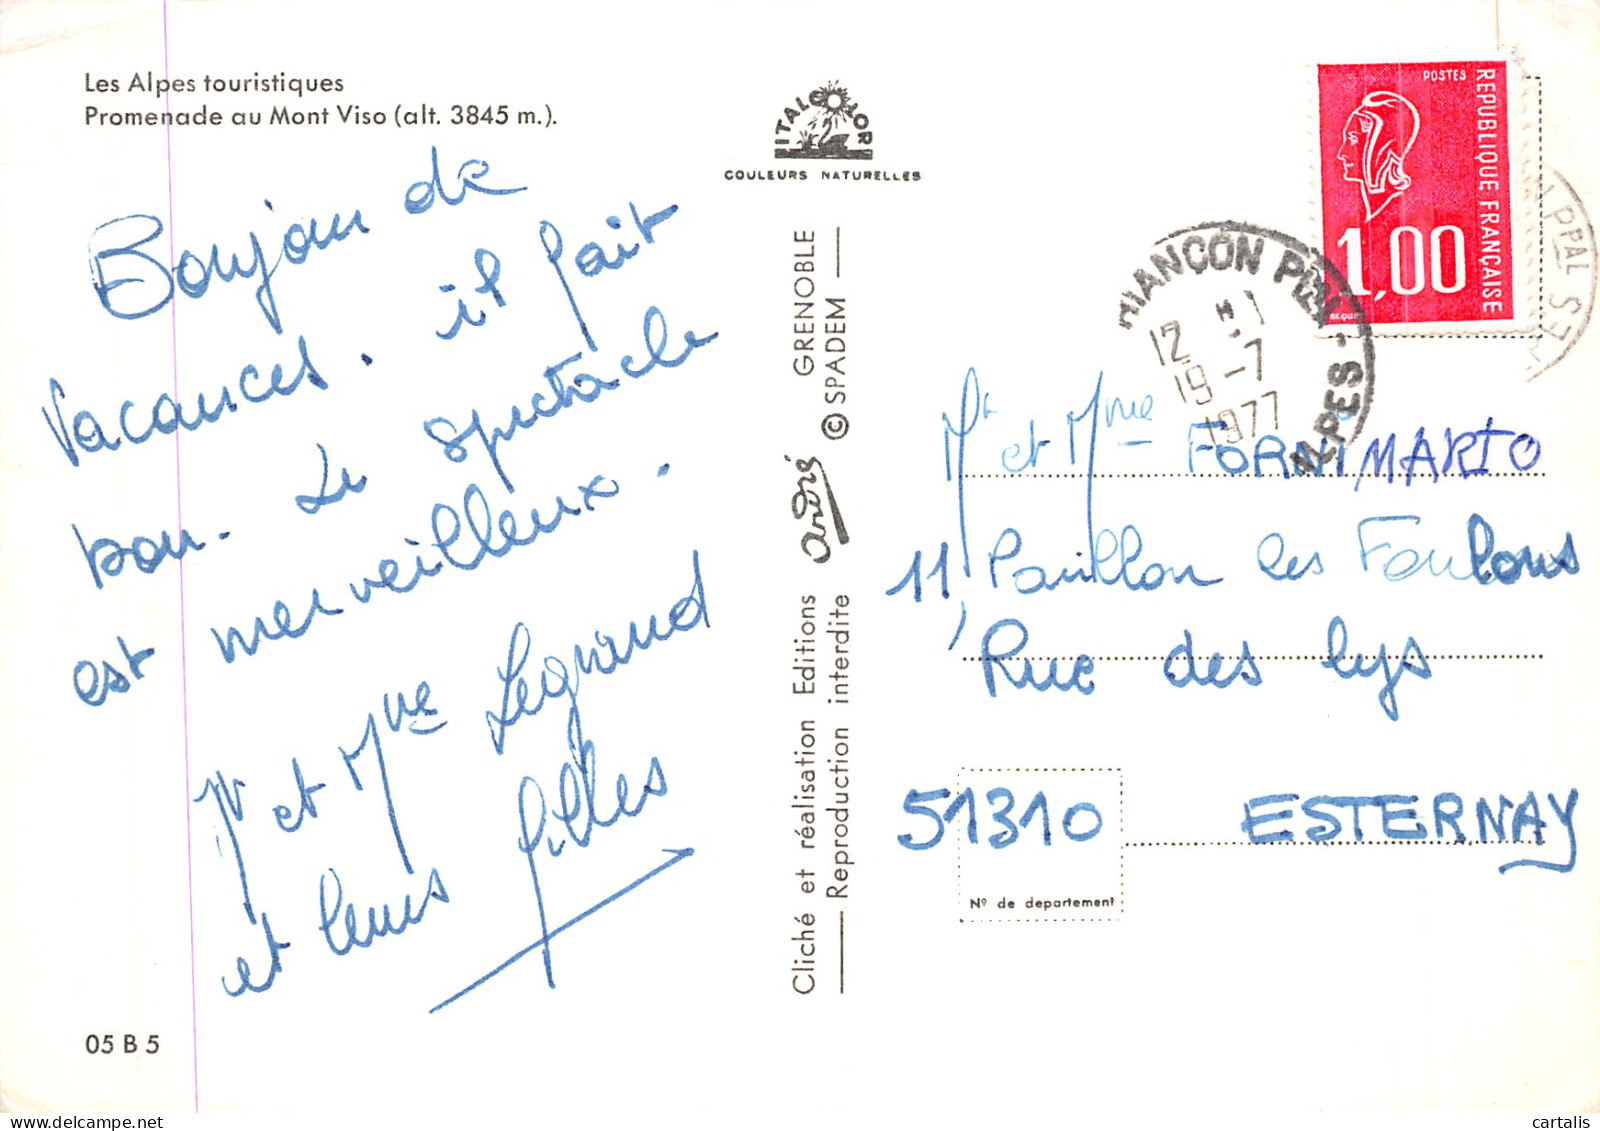 Les Alpes touristiques
Promenade au Mont Viso (alt. 3845 m.).
Bonjour de
vacances. il fait
bon. Le spectacle
est merveilleux.
Mr et Mme Legrand
et leurs filles
05 B 5
ITALCOLOR
COULEURS NATURELLES
Cliché et réalisation Editions André GRENOBLE
Reproduction interdite © SPADEM
POSTES
REPUBLIQUE FRANÇAISE
1,00
BEQUET
BRIANÇON PPAL
ALPES
12 H
19-7
1977
PPAL
Mr et Mme FORNI MARIO
11, Pavillon les Foulons
Rue des lys
51310 ESTERNAY
Nº de departement
cartalis